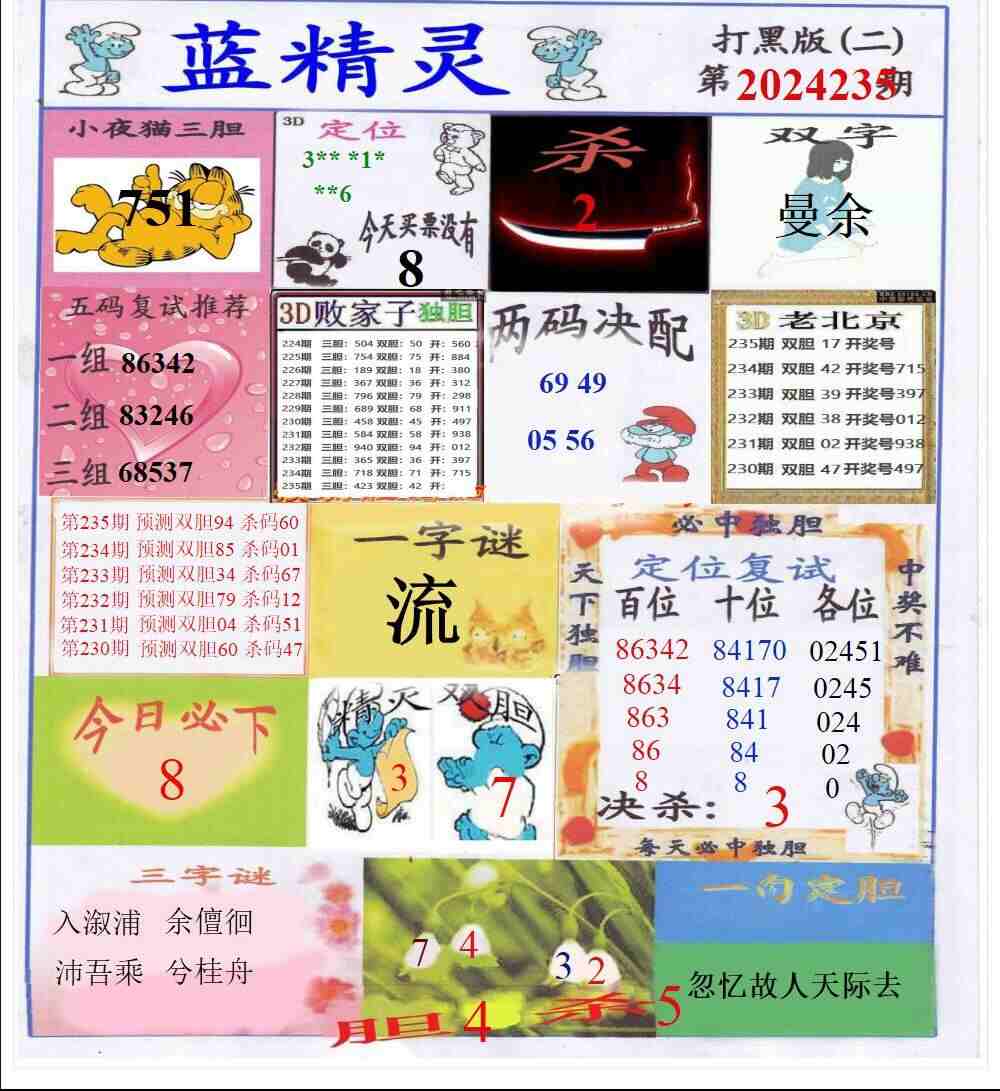 蓝精灵
打黑版(二)
第2024235期
小夜猫三胆
751
3D 定位
3** *1*
**6
今天买票没有
8
杀
2
双字
曼余
五码复试推荐
一组 86342
二组 83246
三组 68537
3D败家子独胆
224期 三胆: 504 双胆: 50 开: 560
225期 三胆: 754 双胆: 75 开: 884
226期 三胆: 189 双胆: 18 开: 380
227期 三胆: 367 双胆: 36 开: 312
228期 三胆: 796 双胆: 79 开: 298
229期 三胆: 689 双胆: 68 开: 911
230期 三胆: 458 双胆: 45 开: 497
231期 三胆: 584 双胆: 58 开: 938
232期 三胆: 940 双胆: 94 开: 012
233期 三胆: 365 双胆: 36 开: 397
234期 三胆: 718 双胆: 71 开: 715
235期 三胆: 423 双胆: 42 开:
两码决配
69 49
05 56
3D 老北京
235期 双胆 17 开奖号
234期 双胆 42 开奖号715
233期 双胆 39 开奖号397
232期 双胆 38 开奖号012
231期 双胆 02 开奖号938
230期 双胆 47 开奖号497
第235期 预测双胆94 杀码60
第234期 预测双胆85 杀码01
第233期 预测双胆34 杀码67
第232期 预测双胆79 杀码12
第231期 预测双胆04 杀码51
第230期 预测双胆60 杀码47
一字谜
流
必中独胆
天下独胆
中奖不难
定位复试
百位 十位 各位
86342 84170 02451
8634 8417 0245
863 841 024
86 84 02
8 8 0
决杀: 3
每天必中独胆
今日必下
8
精灵 双胆
3
7
三字谜
入溆浦 余儃徊
沛吾乘 兮桂舟
7 4 3 2
胆 4 杀 5
一句定胆
忽忆故人天际去